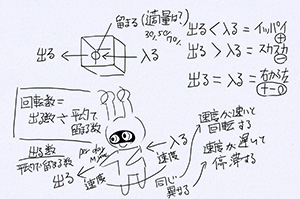 留まる(適量は?)
30, 50, 70%
出る ← ← 入る
出る < 入る = イッパイ
+
出る > 入る = スカスカ
−
出る = 入る = 右から左
+−0
回転数 =
出る数 ÷ 平均で
留まる数
出る数
平均で留まる数
per day
M
Y
出る
速度
入る
速度
同じ
異なる
速度が速いと
回転する
速度が遅いと
停滞する